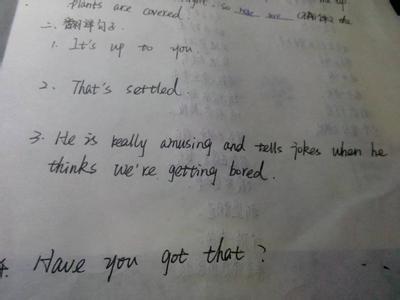 plants are covered. so the
二、翻译句子.
1. It's up to you.
2. That's settled.
3. He is really amusing and tells jokes when he
thinks we're getting bored.
4. Have you got that?